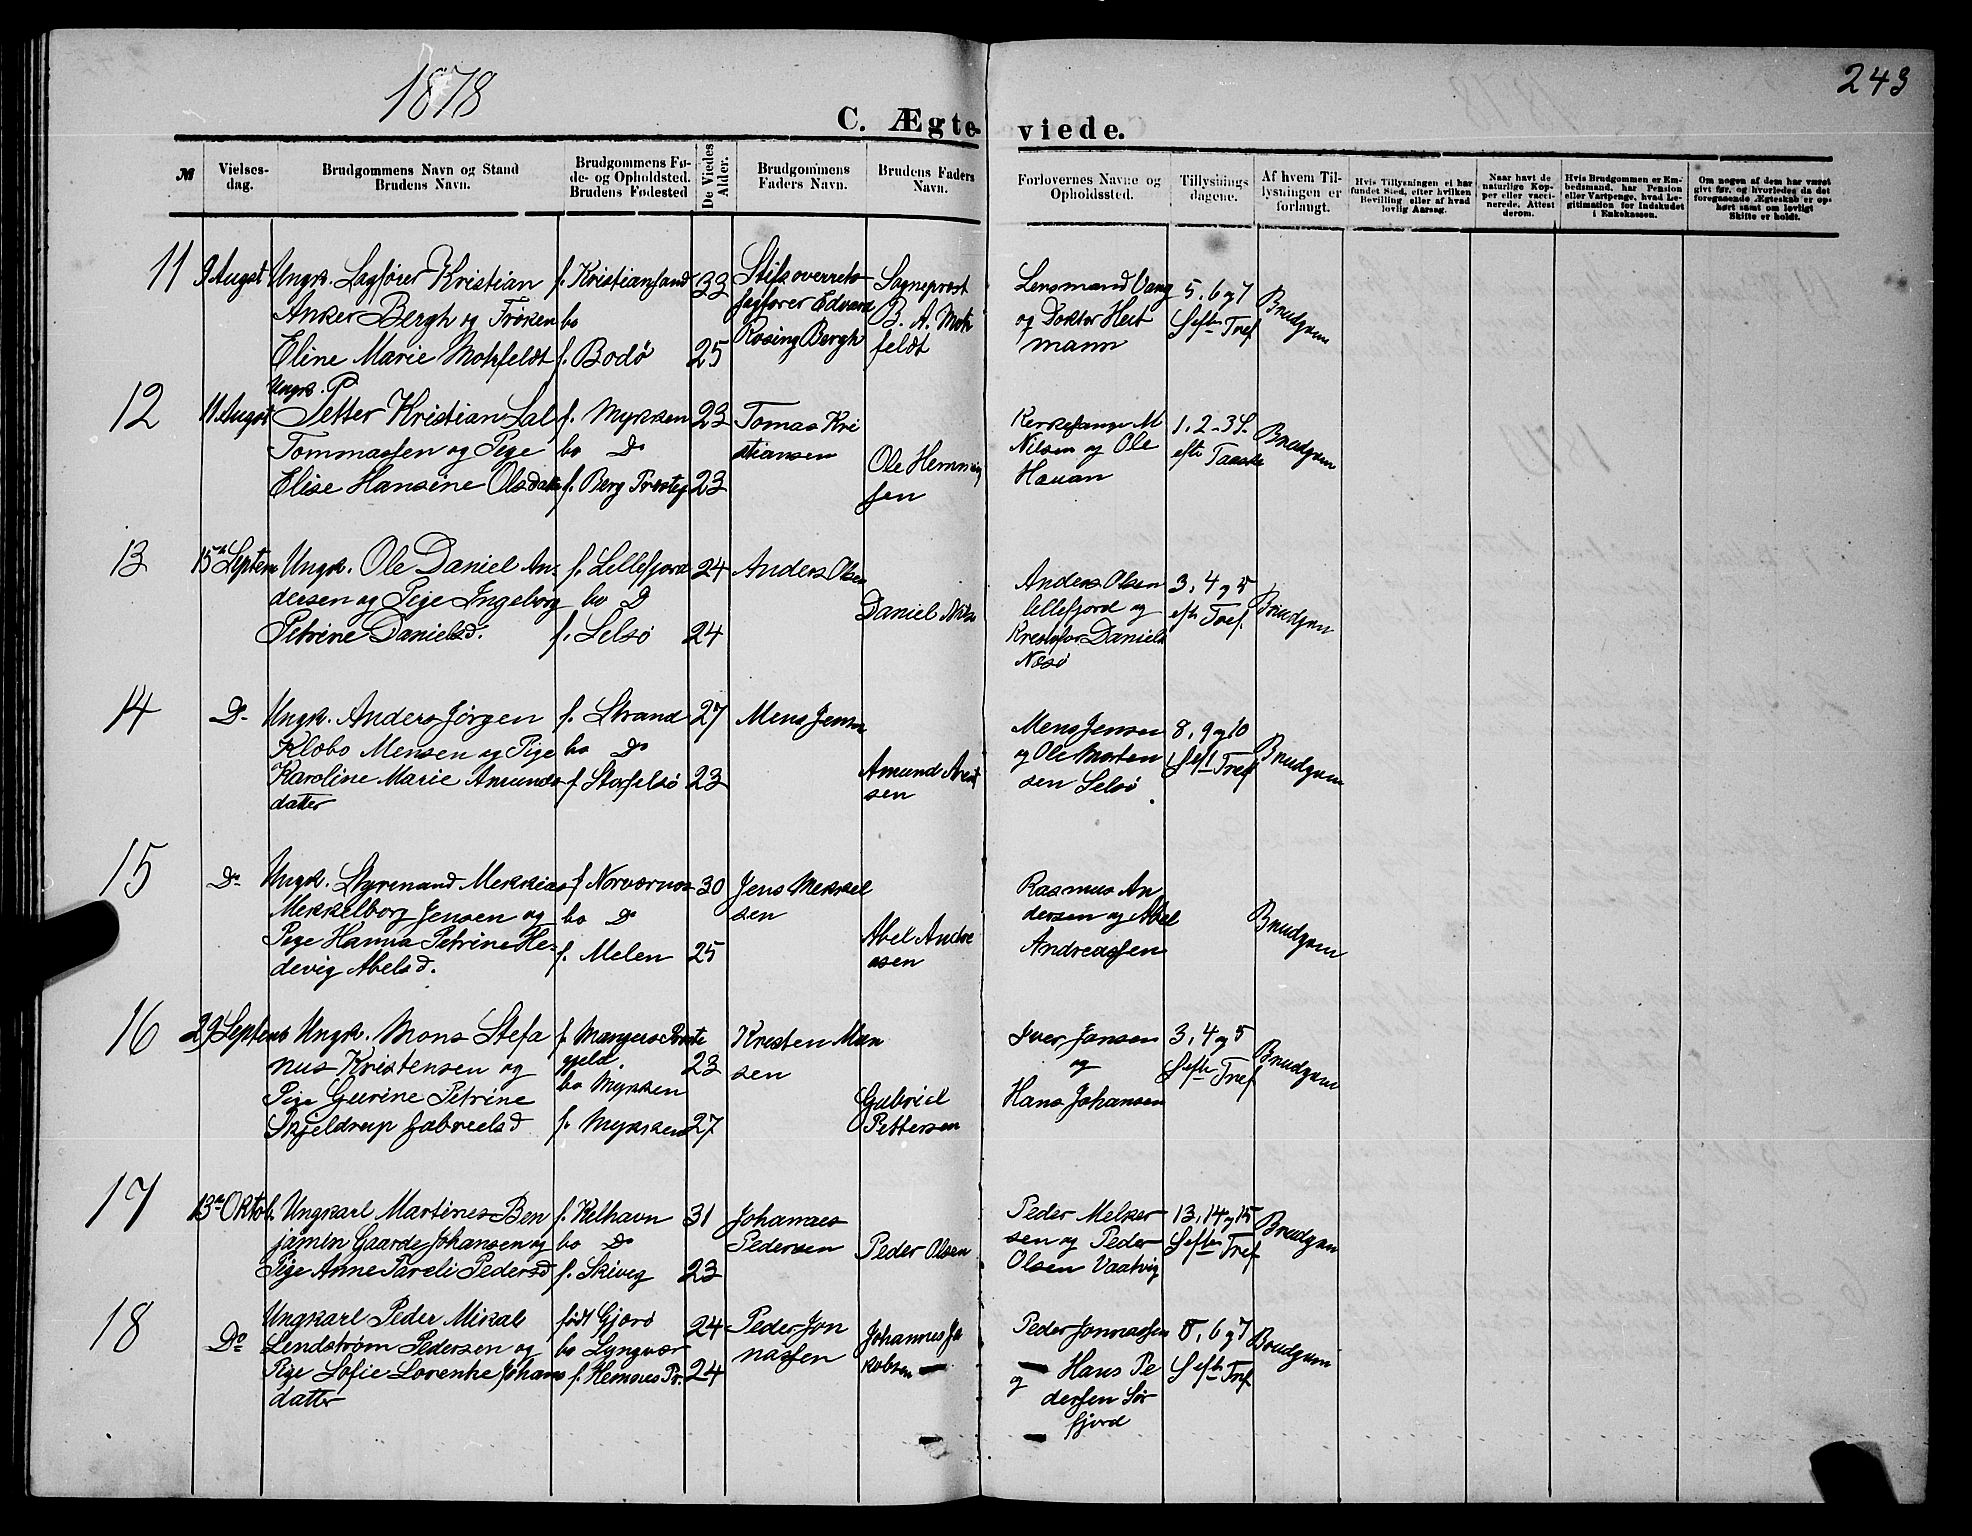 1878
243
C. Ægte-viede.
№
Vielses-
dag.
Brudgommens Navn og Stand
Brudens Navn.
Brudgommens Fø-
de- og Opholdsted.
Brudens Fødested
De Viedes
Alder.
Brudgommens
Faders Navn.
Brudens Faders
Navn.
Forlovernes Navne og
Opholdssted.
Tillysnings
dagene.
Af hvem Til-
lysningen er
forlangt.
Hvis Tillysningen ei har
fundet Sted, efter hvilken
Bevilling eller af hvad
lovlig Aarsag.
Naar havt de
naturlige Kop-
per eller vacci-
nerede. Attest
derom.
Hvis Brudgommen er Em-
bedsmand, har Pension
eller Vartpenge, hvad Le-
gitimation for Indskudet
i Enkekassen.
Om nogen af dem har været
givt før, og hvorledes da det
foregaaende Ægteskab er op-
hørt samt om lovligt
Skifte er holdt.
11
9 Augst
Ungk. Sagfører Kristian
Anker Bergh og Frøken
Eline Marie Mohfeldt
f. Kristiansand
bo
f. Bodø
33
25
Stifsoverrets
sagfører Edvard
Rosing Bergh
Sogneprost
B. A. Moh
feldt
Lensmand Vang
og Dokter Heit
mann
5, 6 og 7
S. eft. Tref
Brudgom
12
11 Augst
Ungk. P
Petter Kristian Lal
Tommassen og Pige
Elise Hansine Olsdatr
f. Mykken
bo Do
f. Berg Presteg
23
23
Tomas Kri
stiansen
Ole Hemming
sen
Kerkesanger M
Nilsen og Ole
Hauan
1. 2 - 3 S.
efte Paaske
Brudgom
13
15de Septem
Ungk. Ole Daniel An-
dersen og Pige Ingeborg
Petrine Danielsd.
f. Lillefjord
bo D
f. Selsø
24
24
Anders Olsen
Daniel Nils
Anders Olsen
lillefjord og
Krestofor Daniels
Næsø
3, 4 og 5
eft. Tref.
Brudgom
14
Do
Ungk. Anders Jørgen
Klobo Mensen og Pige
Karoline Marie Amunds
datter
f. Strand
bo Do
f. Storselsø
27
23
Mens Jensen
Amund Arent
sen
Mens Jensen
og Ole Morten
sen Selsø
8, 9 og 10
S. eft Tref
Brudgom
15
Do
Ungk. Styrenand Mekkias
Mekkelborg Jensen og
Pige Hanna Petrine He-
devig Abelsd.
f. Norværnes
bo Do
f. Melen
30
25
Jens Mekkel
sen
Abel Andre
asen
Rasmus An
dersen og Abel
Andreassen
Brudgom
16
29 Septemb
Ungk. Mons Stefa
nus Kristensen og
Pige Gurine Petrine
Skjeldrup Gabrielsd
f. Mangers Preste
gjeld.
bo Mykken
f. Mykken
23
27
Kresten Mon
sen
Gabriel
Pettersen
Iver Jansen
og
Hans Johansen
3, 4 og 5
S. efte Tref
Brudgom
17
13de Oktob.
Ungkarl Martines Ben
jamin Gaarde Johansen og
Pige Anne Pareli Pedersd
f. Kelhavn
bo Do
f. Skiveg
31
23
Johannes
Pedersen
Peder Olsen
Peder Melker
sen og Peder
Olsen Vaatvig
13, 14 og 15
S. efter Tref
Brudgom
18
Do
Ungkarl Peder Mikal
Lendstrøm Pedersen og
Pige Sofie Lorentse Johans
datter
født Gjerø
bo Lyngvær
f. Hemnes Pr.
24
24
Peder Jon
nassen
Johannes Ja
kobsen
Peder Jonnassen
og Hans Pe
dersen Sør
fjord
5, 6 og 7
S. eft Tref
Brudgom